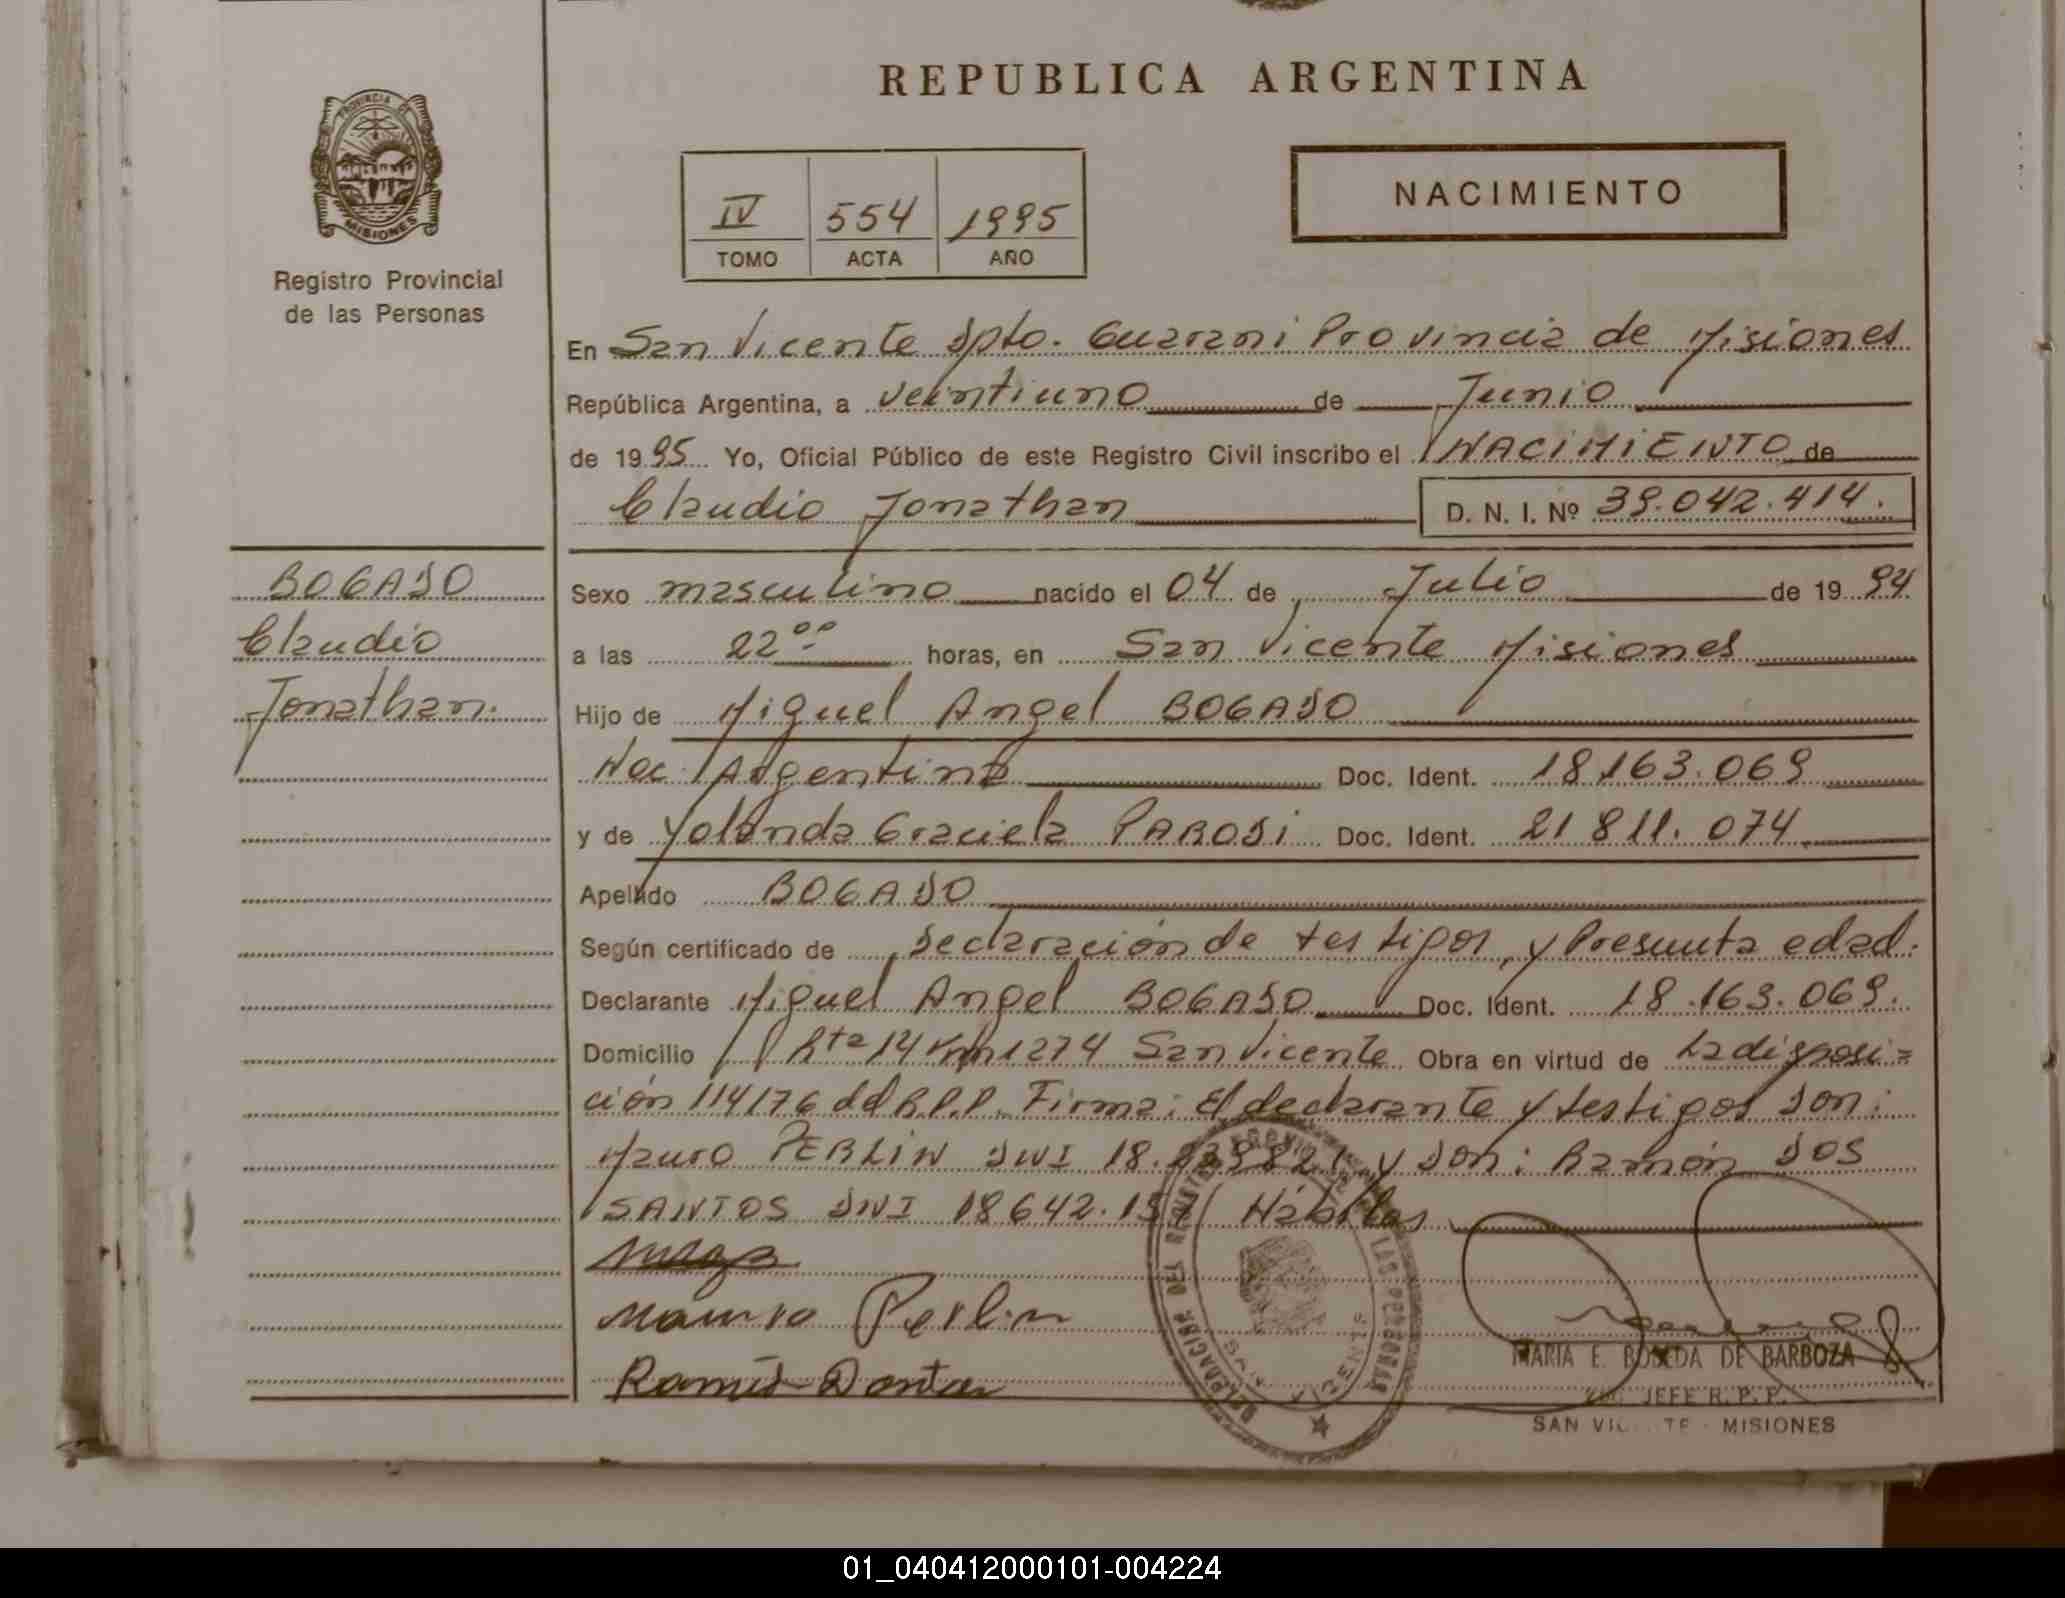 REPUBLICA ARGENTINA
PROVINCIA DE
MISIONES
Registro Provincial
de las Personas
IV 554 1995
TOMO ACTA AÑO
NACIMIENTO
En San Vicente Dpto. Guarani Provincia de Misiones
República Argentina, a veintiuno de Junio
de 1995 Yo, Oficial Público de este Registro Civil inscribo el NACIMIENTO de
Claudio Jonathan D. N. I. Nº 39.042.414.
BOGADO
Claudio
Jonathan.
Sexo masculino nacido el 04 de Julio de 1994
a las 22⁰⁰ horas, en San Vicente Misiones
Hijo de Miguel Angel BOGADO
Nac. Argentina Doc. Ident. 18.163.069
y de Yolanda Graciela PARODI Doc. Ident. 21 811.074
Apellido BOGADO
Según certificado de Declaración de testigos, y Presunta edad.
Declarante Miguel Angel BOGADO Doc. Ident. 18.163.069.
Domicilio Rta 14 Km 1274 San Vicente Obra en virtud de La disposi=
ción 114/76 del R.P.P. Firma: El declarante y testigos Don:
Mauro PERLIN DNI 18. y Don: Ramón DOS
SANTOS DNI 18642. Hábiles
Mauro Perlin
DELEGACION DEL REGISTRO PROVINCIAL DE LAS PERSONAS
SAN VICENTE
MARIA E. DE BARBOZA
JEFE R. P. P.
SAN VICENTE - MISIONES
01_040412000101-004224